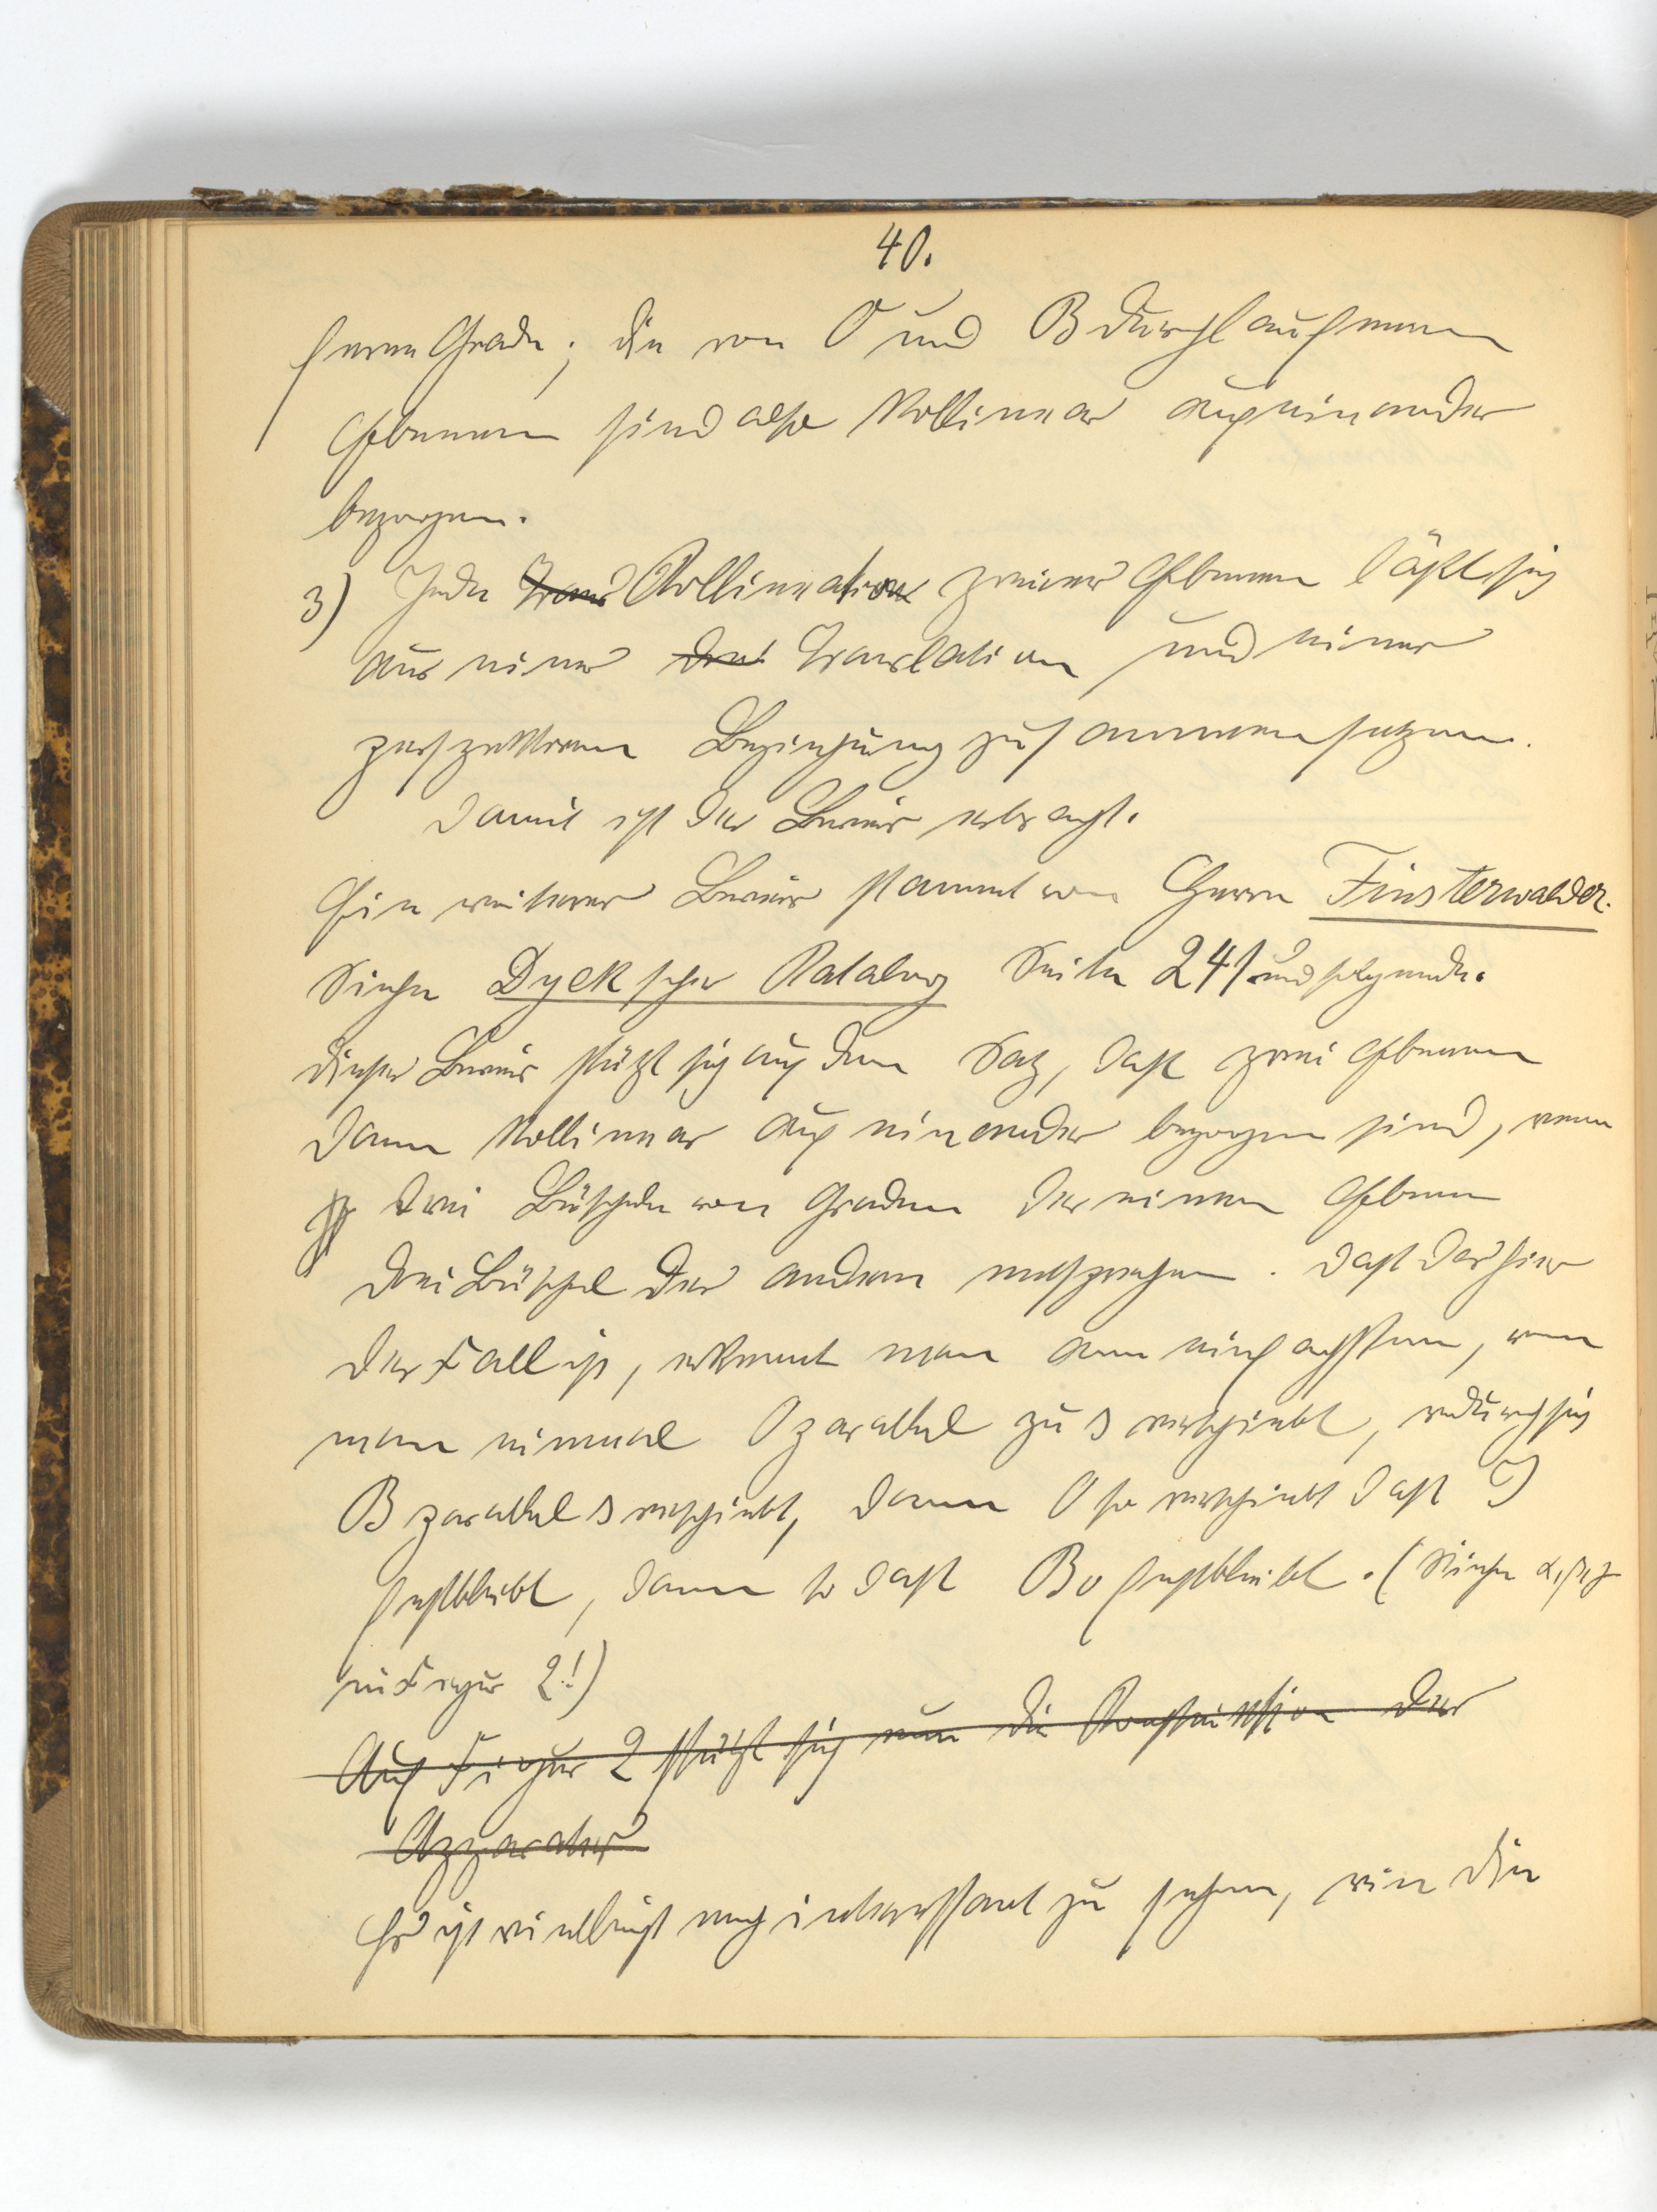 40.
ferne Grade; die von O und B durchlaufenen
Ebenen sind also kollinear aufeinander
bezogen.
3) Jede Trans Kollineation zweier Ebenen läßt sich
aus einer drei Translation und einer
perspektiven Beziehung zusammensetzen.
Damit ist der Beweis erbracht.
Ein weiterer Beweis stammt von Herrn Finsterwalder.
Siehe Dyck scher Katalog Seite 241 und folgende.
Dieser Beweis stützt sich auf den Satz, daß zwei Ebenen
dann kollinear auf einander bezogen sind, wenn
drei Büscheln von Graden der einen Ebene
drei Büschel der andern entsprechen. Daß das hier
der Fall ist, erkennt man am einfachsten, wenn
man einmal O parallel zu s verschiebt, wodurch sich
B parallel s verschiebt, dann O so verschiebt daß J
festbleibt, dann so daß Bo festbleibt. (Siehe α, β, γ
in Figur 2!)
Auf Figur 2 stützt sich nun die Konstruktion der
Apparate
Es ist vielleicht noch interessant zu sehen, wie die